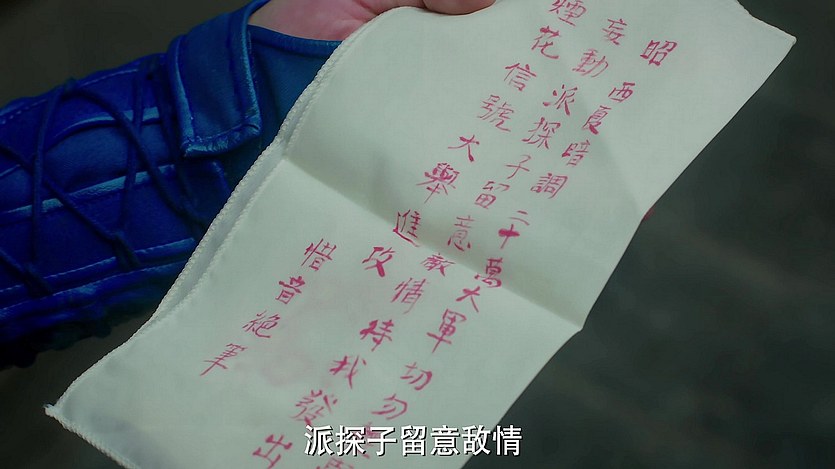 昭
西夏暗調二十萬大軍切勿
妄動派探子留意敵情待找發出
煙花信號大舉進攻
惜音絶筆
派探子留意敌情